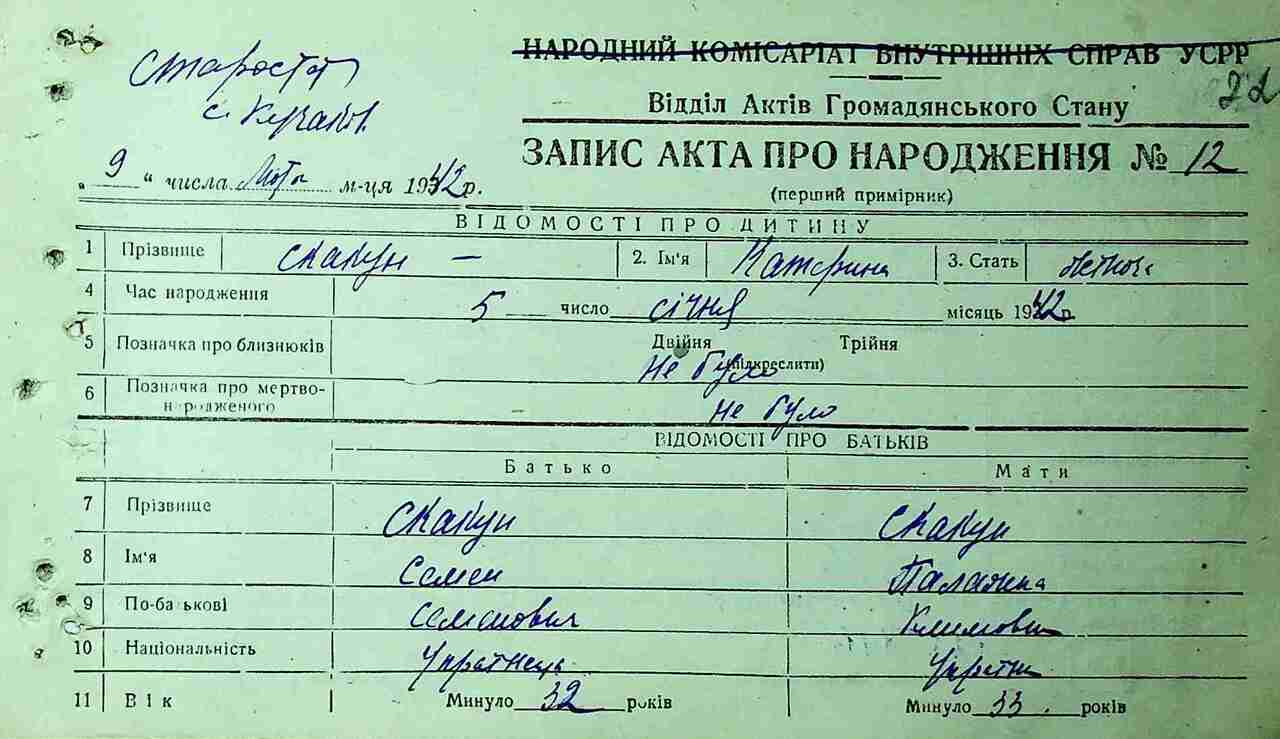 НАРОДНИЙ КОМІСАРІАТ ВНУТРІШНІХ СПРАВ УСРР
22
Староста
с. Кучаків
Відділ Актів Громадянського Стану
ЗАПИС АКТА ПРО НАРОДЖЕННЯ № 12
(перший примірник)
„ 9 “ числа м-ця 1942 р.
ВІДОМОСТІ ПРО ДИТИНУ
1 Прізвище Скакун — 2. Ім'я Катерина 3. Стать жіноч
4 Час народження 5 число січня місяць 1942 р.
5 Позначка про близнюків Двійня Трійня
(підкреслити)
Не було
6 Позначка про мертво-
народженого Не було
ВІДОМОСТІ ПРО БАТЬКІВ
Батько Мати
7 Прізвище Скакун Скакун
8 Ім'я Семен Палажка
9 По-батькові Семенович Климовна
10 Національність Українець Україн
11 Вік Минуло 32 років Минуло 33 років